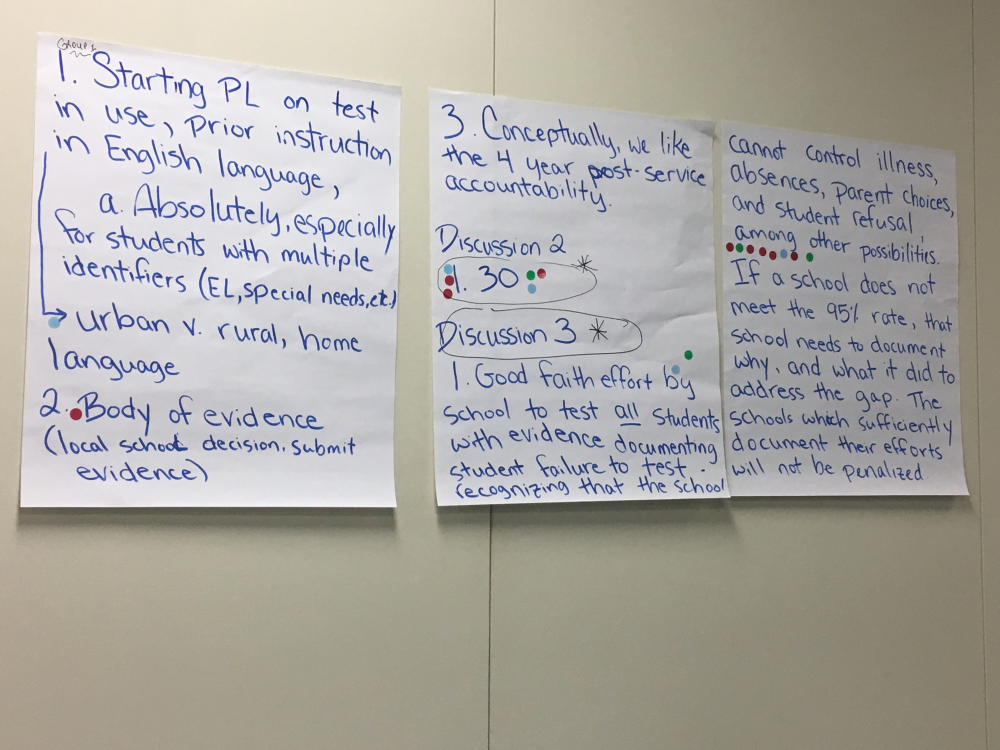 Group 1
1. Starting PL on test
in use, prior instruction
in English language,
a. Absolutely, especially
for students with multiple
identifiers (EL, special needs, etc.)
urban v. rural, home
language
2. Body of evidence
(local school decision. submit
evidence)
3. Conceptually, we like
the 4 year post-service
accountability.
Discussion 2
1. 30 *
Discussion 3 *
1. Good faith effort by
school to test all students
with evidence documenting
student failure to test.
recognizing that the school
cannot control illness,
absences, parent choices,
and student refusal,
among other possibilities.
If a school does not
meet the 95% rate, that
school needs to document
why, and what it did to
address the gap. The
schools which sufficiently
document their efforts
will not be penalized.